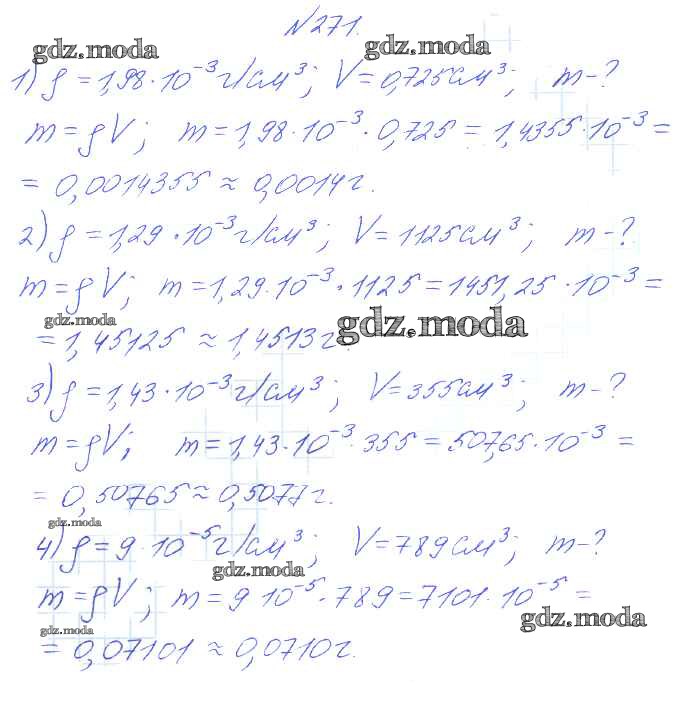 №271.
gdz.moda gdz.moda
1) ρ = 1,98·10⁻³ г/см³; V = 0,725 см³; m - ?
m = ρV; m = 1,98·10⁻³·0,725 = 1,4355·10⁻³ =
= 0,0014355 ≈ 0,0014 г.
2) ρ = 1,29·10⁻³ г/см³; V = 1125 см³; m - ?
m = ρV; m = 1,29·10⁻³·1125 = 1451,25·10⁻³ =
gdz.moda gdz.moda
= 1,45125 ≈ 1,4513 г.
3) ρ = 1,43·10⁻³ г/см³; V = 355 см³; m - ?
m = ρV; m = 1,43·10⁻³·355 = 507,65·10⁻³ =
= 0,50765 ≈ 0,5077 г.
gdz.moda
4) ρ = 9·10⁻⁵ г/см³; V = 789 см³; m - ?
gdz.moda
m = ρV; m = 9·10⁻⁵·789 = 7101·10⁻⁵ =
gdz.moda
gdz.moda
= 0,07101 ≈ 0,0710 г.